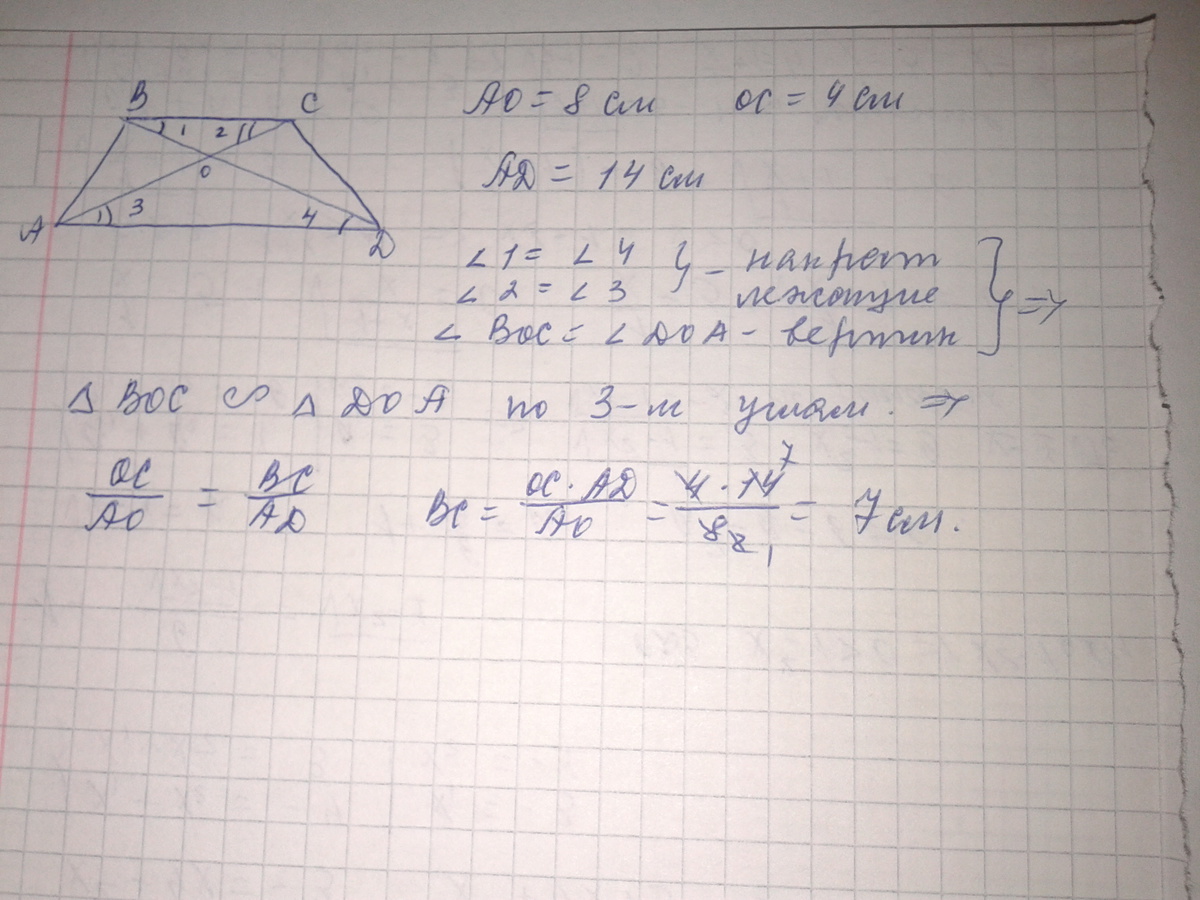 B C
1 2
O
3 4
A D
AO = 8 см OC = 4 см
AD = 14 см
∠1 = ∠4 } - накрест
∠2 = ∠3 лежащие } =>
∠BOC = ∠DOA - вертик
△ BOC ∽ △ DOA по 3-м углам. =>
OC/AO = BC/AD BC = OC · AD/AO = 4 · 14 7/8 2 1 = 7 см.